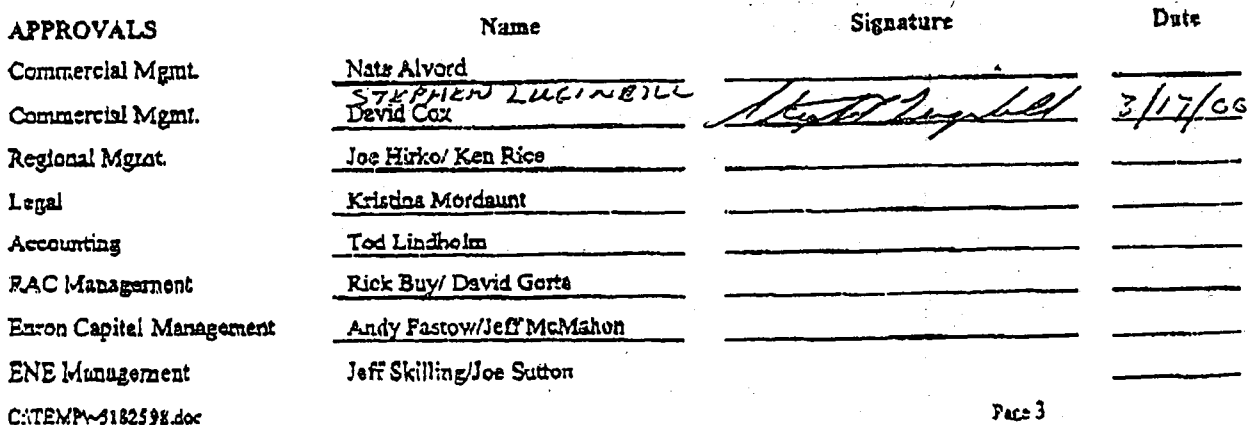 APPROVALS Name Signature Date
Commercial Mgmt. Nate Alvord
STEPHEN LUGINBILL
Commercial Mgmt. David Cox 3/17/00
Regional Mgmt. Joe Hirko/ Ken Rice
Legal Kristina Mordaunt
Accounting Tod Lindholm
RAC Management Rick Buy/ David Gorte
Enron Capital Management Andy Fastow/Jeff McMahon
ENE Management Jeff Skilling/Joe Sutton
C:\TEMP\~5182598.doc Page 3